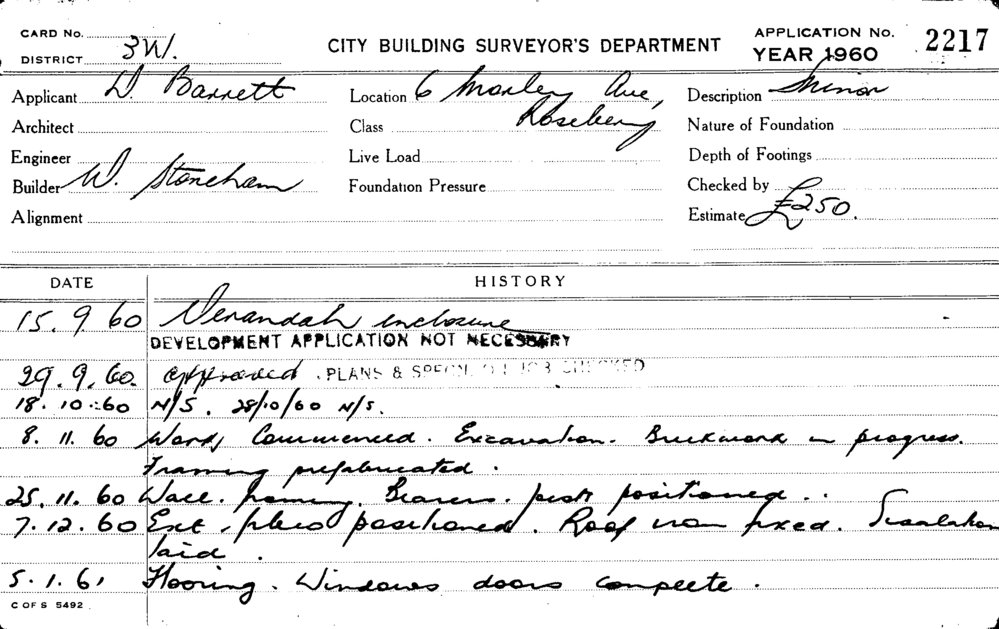 CARD No.
DISTRICT 3W.
CITY BUILDING SURVEYOR'S DEPARTMENT
APPLICATION No. 2217
YEAR 1960
Applicant D. Barrett
Location 6 Morley Ave, Rosebery
Description Minor
Architect
Class
Nature of Foundation
Engineer
Live Load
Depth of Footings
Builder W. Stoneham
Foundation Pressure
Checked by
Alignment
Estimate £250.
DATE HISTORY
15.9.60 Verandah enclosure
DEVELOPMENT APPLICATION NOT NECESSARY
29.9.60. approved. PLANS & SPECN. JOB CHECKED
18.10.60 N/S. 28/10/60 N/S.
8.11.60 Work Commenced. Excavation. Brickwork in progress.
Framing prefabricated.
25.11.60 Wall framing. Bearers. positioned..
7.12.60 Ext. fibro positioned. Roof iron fixed. Sisalation
laid.
5.1.61 Flooring. Windows doors complete.
C OF S 5492